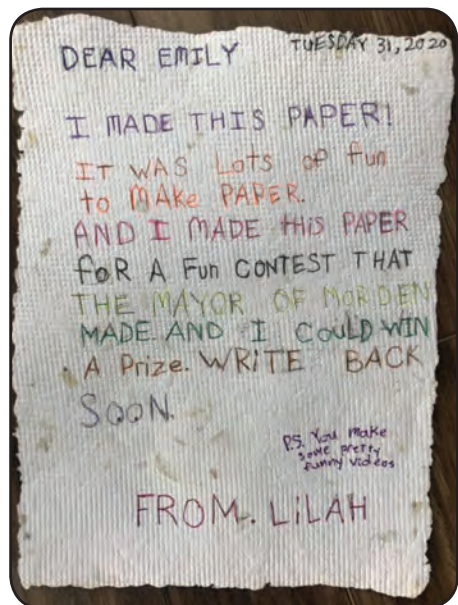 DEAR EMILY TUESDAY 31, 2020
I MADE THIS PAPER!
IT WAS Lots of fun
to MAKe PAPER.
AND I MADE tHiS PAPER
foR A Fun CONTEST THAT
THE MAYOR OF MORDEN
MADE. AND I COULD WIN
A Prize. WRiTE BACK
SOON.
P.S. You Make
some pretty
funny videos
FROM. LiLAH